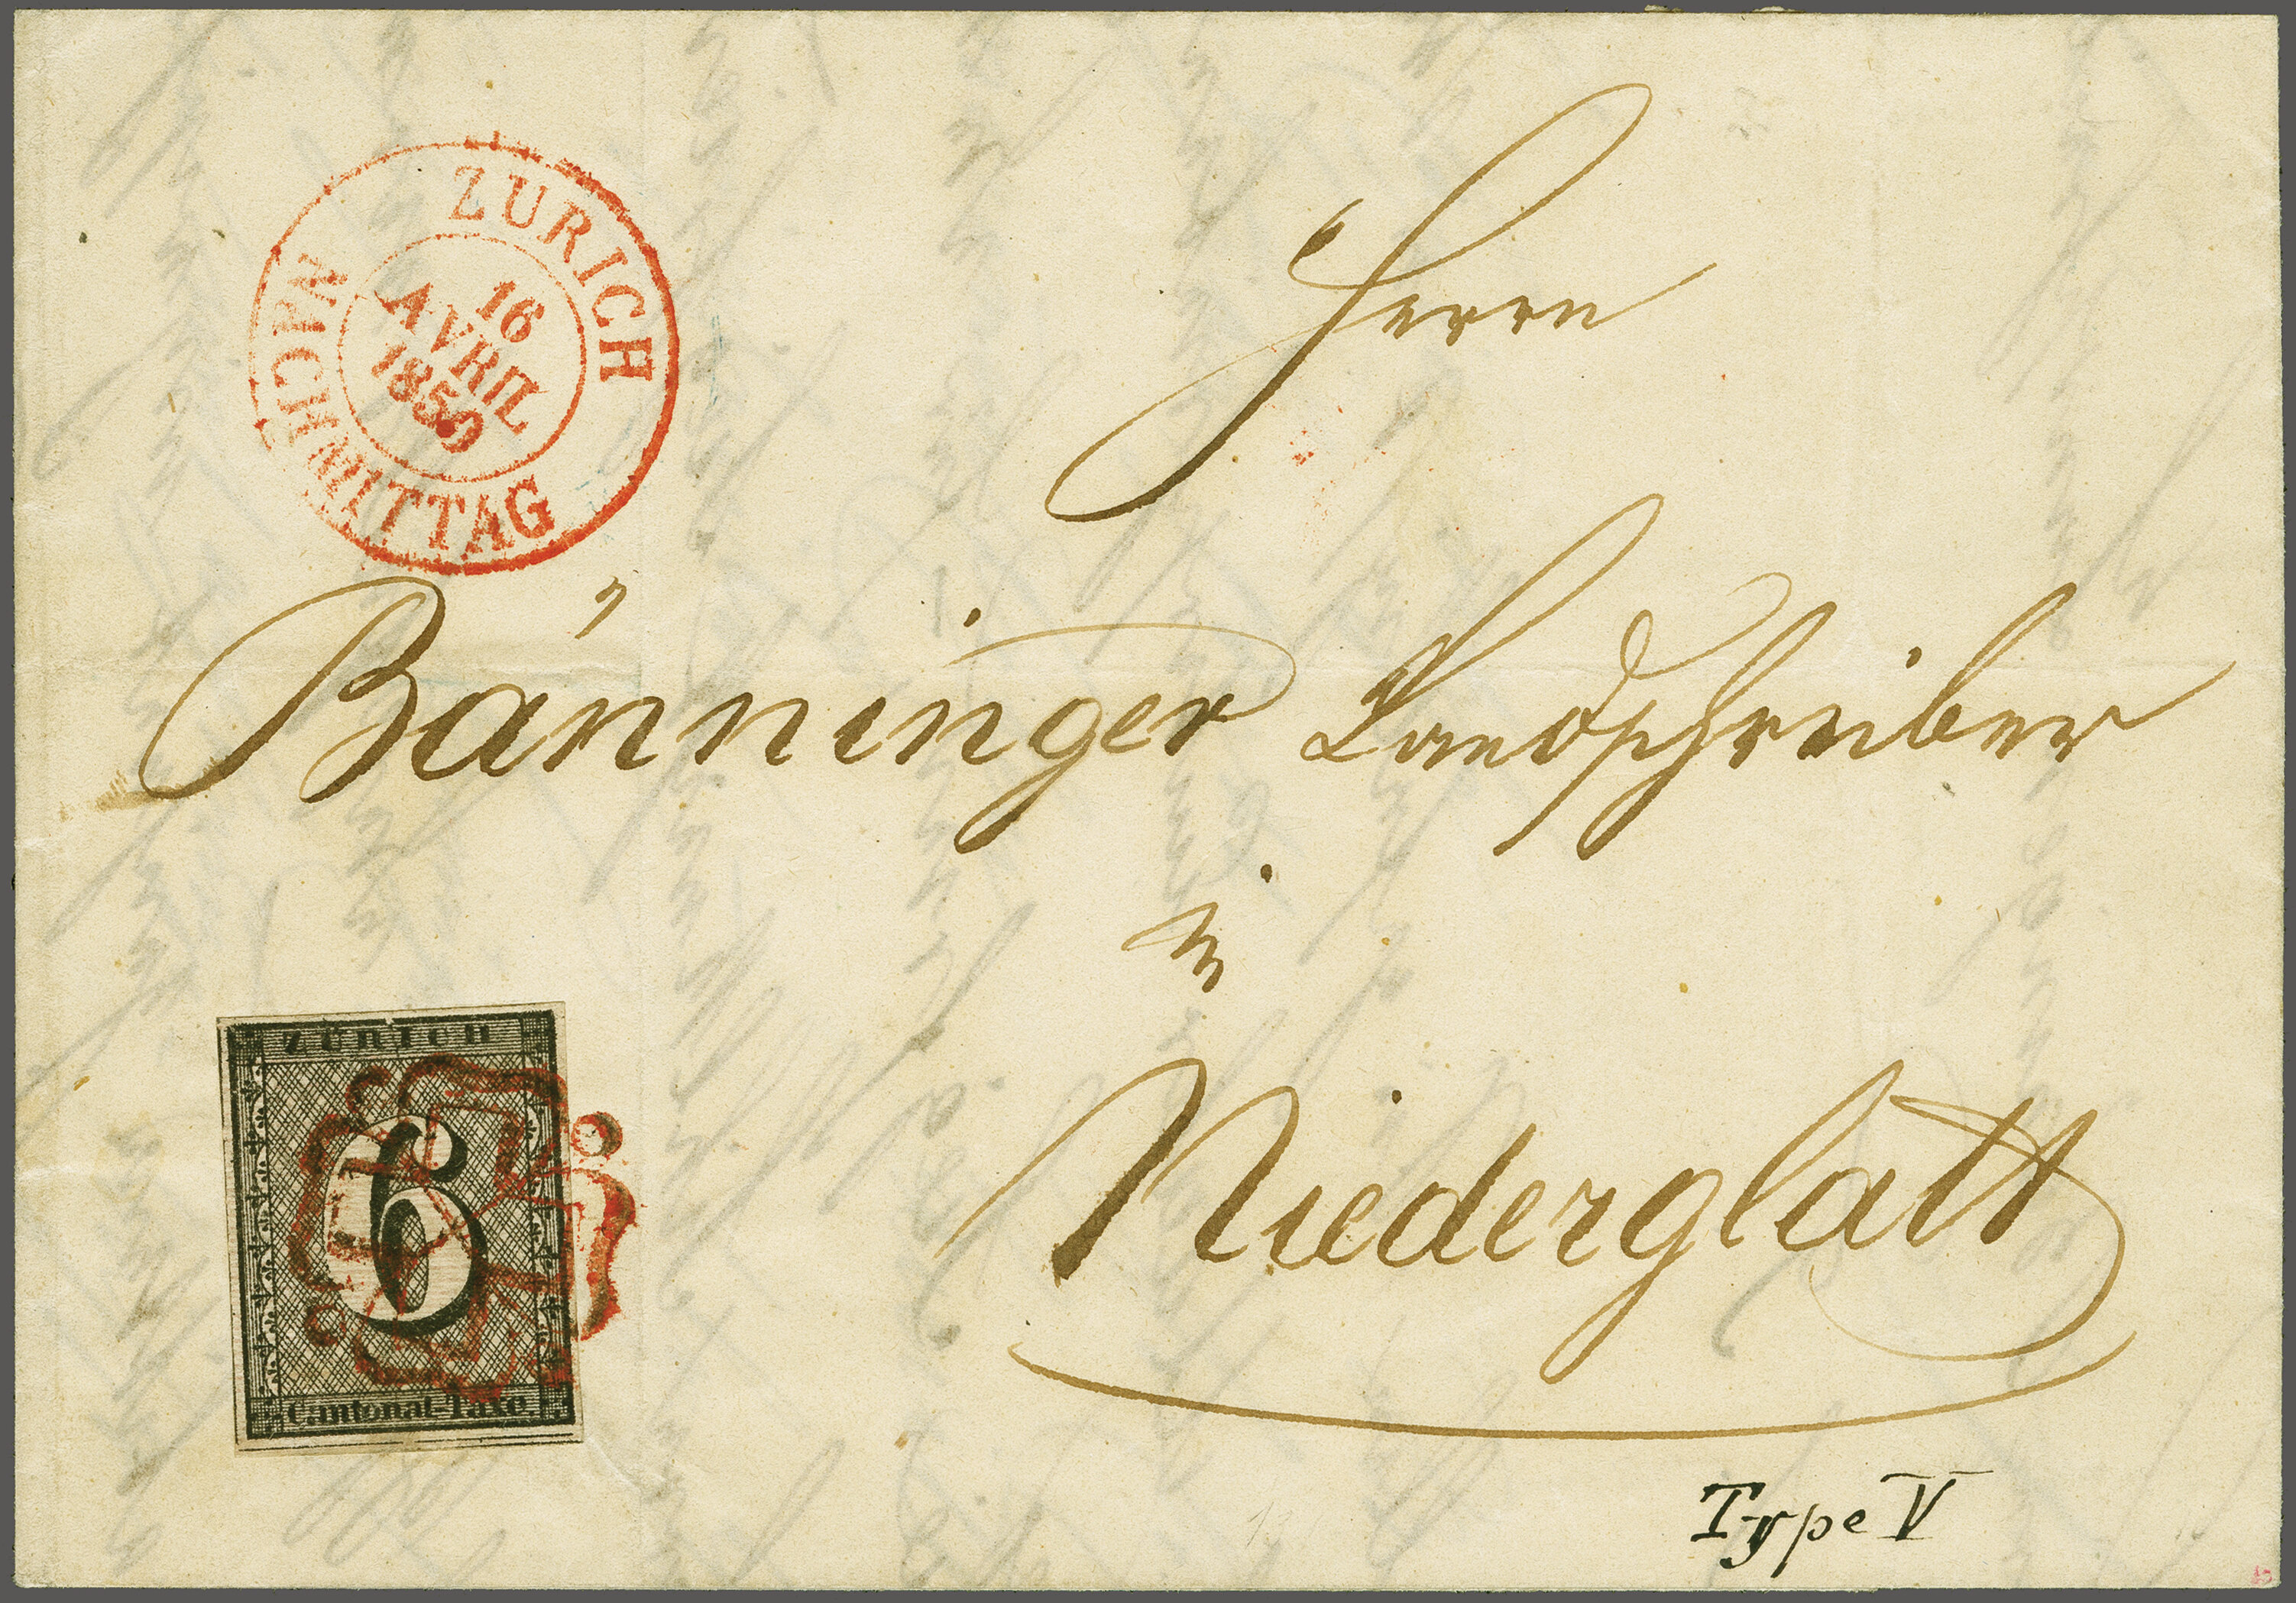 ZURICH
16
AVRIL
1850
NACHMITTAG
Herrn
Bänninger Landschreiber
in
Niederglatt
ZÜRICH
6
Cantonal-Taxe.
Type V